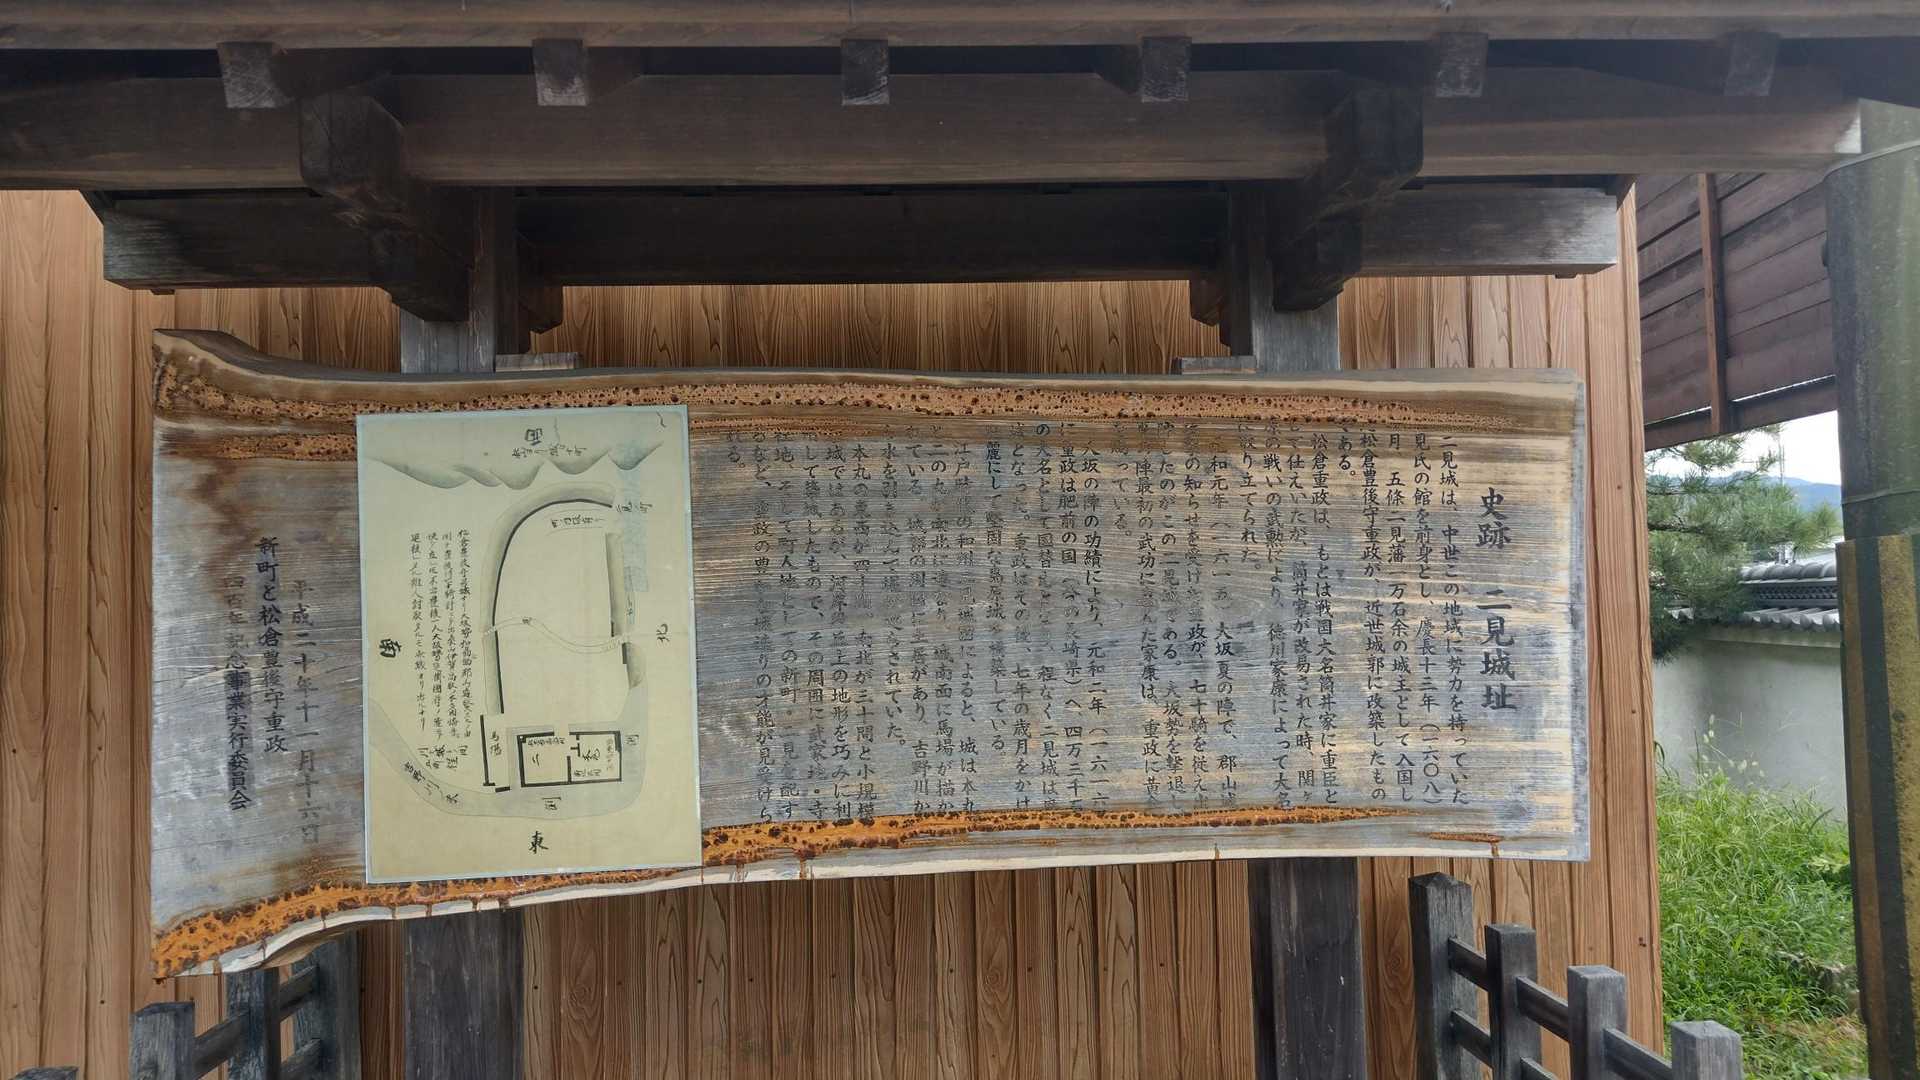 史跡 二見城址
二見城は、中世この地域に勢力を持っていた
見氏の館を前身とし、慶長十三年(一六〇八)
月、五條二見藩一万石余の城主として入国し
松倉豊後守重政が、近世城郭に改築したもの
である。
松倉重政は、もとは戦国大名筒井家に重臣と
して仕えいたが、筒井家が改易された時、関ヶ
原の戦いの武勲により、徳川家康によって大名
に取り立てられた。
元和元年(一六一五)大坂夏の陣で、郡山城
の知らせを受けた重政が、七十騎を従え出
陣したのがこの二見城である。大坂勢を撃退し
陣最初の武功に喜んだ家康は、重政に黄金
を賜っている。
大坂の陣の功績により、元和二年(一六一六
に重政は肥前の国(今の長崎県)へ、四万三千石
の大名として国替えとなり、程なく二見城は廃
城となった。重政はその後、七年の歳月をかけ
麗にして堅固な島原城を構築している。
江戸時代の和州二見城図によると、城は本丸
と二の丸が南北に連なり、城南面に馬場が描か
れている。城郭の周囲に土居があり、吉野川か
水を引き込んで堀が巡らされていた。
本丸の東西が四十間、南北が三十間と小規模
城ではあるが、河岸段丘上の地形を巧みに利
用して築城したもので、その周囲に武家地・寺
社地、そして町人地としての新町・二見を配す
るなど、重政の豊かな城造りの才能が見受けら
れる。
西
北
南
東
二
本丸
馬場
吉野川
平成二十年十一月十六日
新町と松倉豊後守重政
四百年記念事業実行委員会